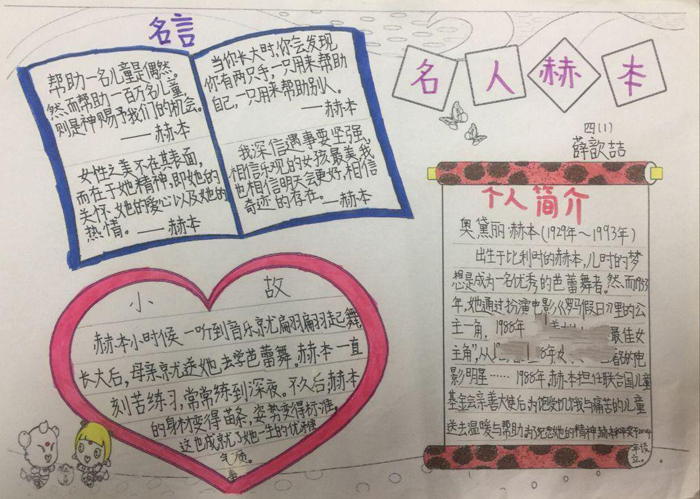 名言
帮助一名儿童是偶然,
然而帮助一百万名儿童,
则是神赐予我们的机会。
——赫本
女性之美不在其表面,
而在于她精神,即她的
关怀、她的爱心以及她的
热情。——赫本
当你长大时,你会发现
你有两只手,一只用来帮助
自己,一只用来帮助别人。
——赫本
我深信遇事要坚强,
相信乐观的女孩最美,我
也相信明天会更好,相信
奇迹的存在。——赫本
名人赫本
四(1)
薛歆喆
个人简介
奥黛丽·赫本(1929年～1993年)
出生于比利时的赫本,儿时的梦
想是成为一名优秀的芭蕾舞者。然而1953
年,她通过扮演电影《罗马假日》里的公
主一角,1988年
最佳女
主角”,从
8年
影明星……1988年,赫本担任联合国儿童
基金会亲善大使后
与痛苦的儿童
送去温暖与帮助
她的精神
小故
赫本小时候一听到音乐就翩翩起舞
长大后,母亲就送她去学芭蕾舞。赫本一直
刻苦练习,常常练到深夜。不久后赫本
的身材变得苗条,姿势变得标准,
这也成就了她一生的优雅
气质